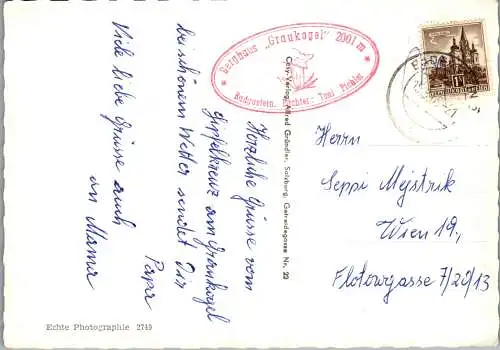 Berghaus „Graukogel“ 2001 m
Badgastein, Pächter: Toni Pichler
Herzliche Grüsse vom
Gipfelkreuz am Graukogel
bei schönem Wetter sendet Dir
Papa
Viele liebe Grüsse auch
an Mama
Cosy-Verlag Alfred Gründler, Salzburg, Getreidegasse Nr. 22
Echte Photographie 2749
Herrn
Seppi Mejstrik
Wien 19.,
Flotowgasse 7/20/13
REPUBLIK ÖSTERREICH